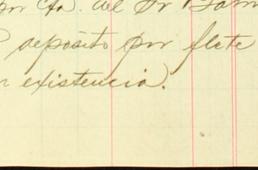 por Cta. del Sr Ram
depósito por flete
n existencia).